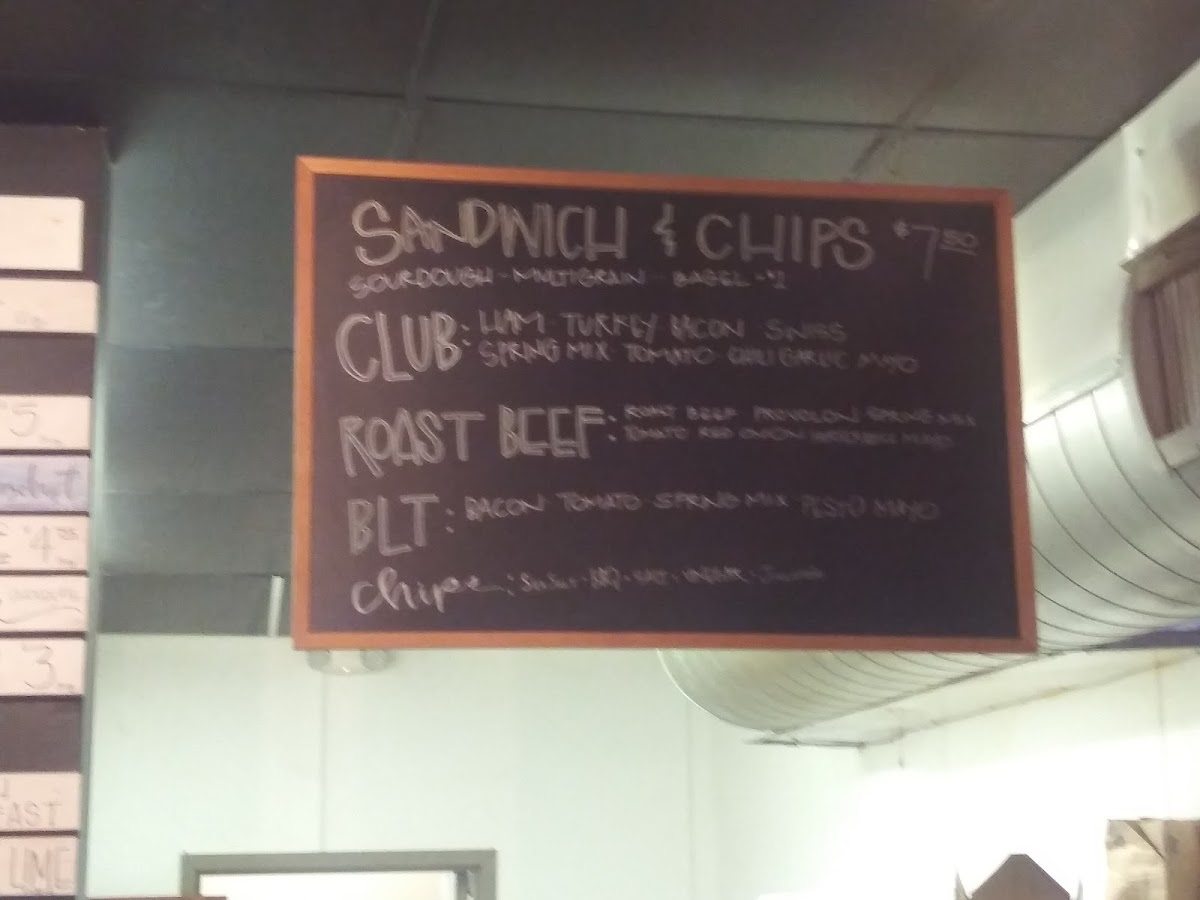 SANDWICH & CHIPS $7.50
SOURDOUGH - MULTIGRAIN - BAGEL +$1
CLUB: HAM TURKEY BACON SWISS
SPRING MIX TOMATO CHILI GARLIC MAYO
ROAST BEEF: ROAST BEEF PROVOLON SPRING MIX
TOMATO RED ONION MAYO
BLT: BACON TOMATO SPRING MIX PESTO MAYO
chips: BBQ
5
$4
3
FAST
LIME